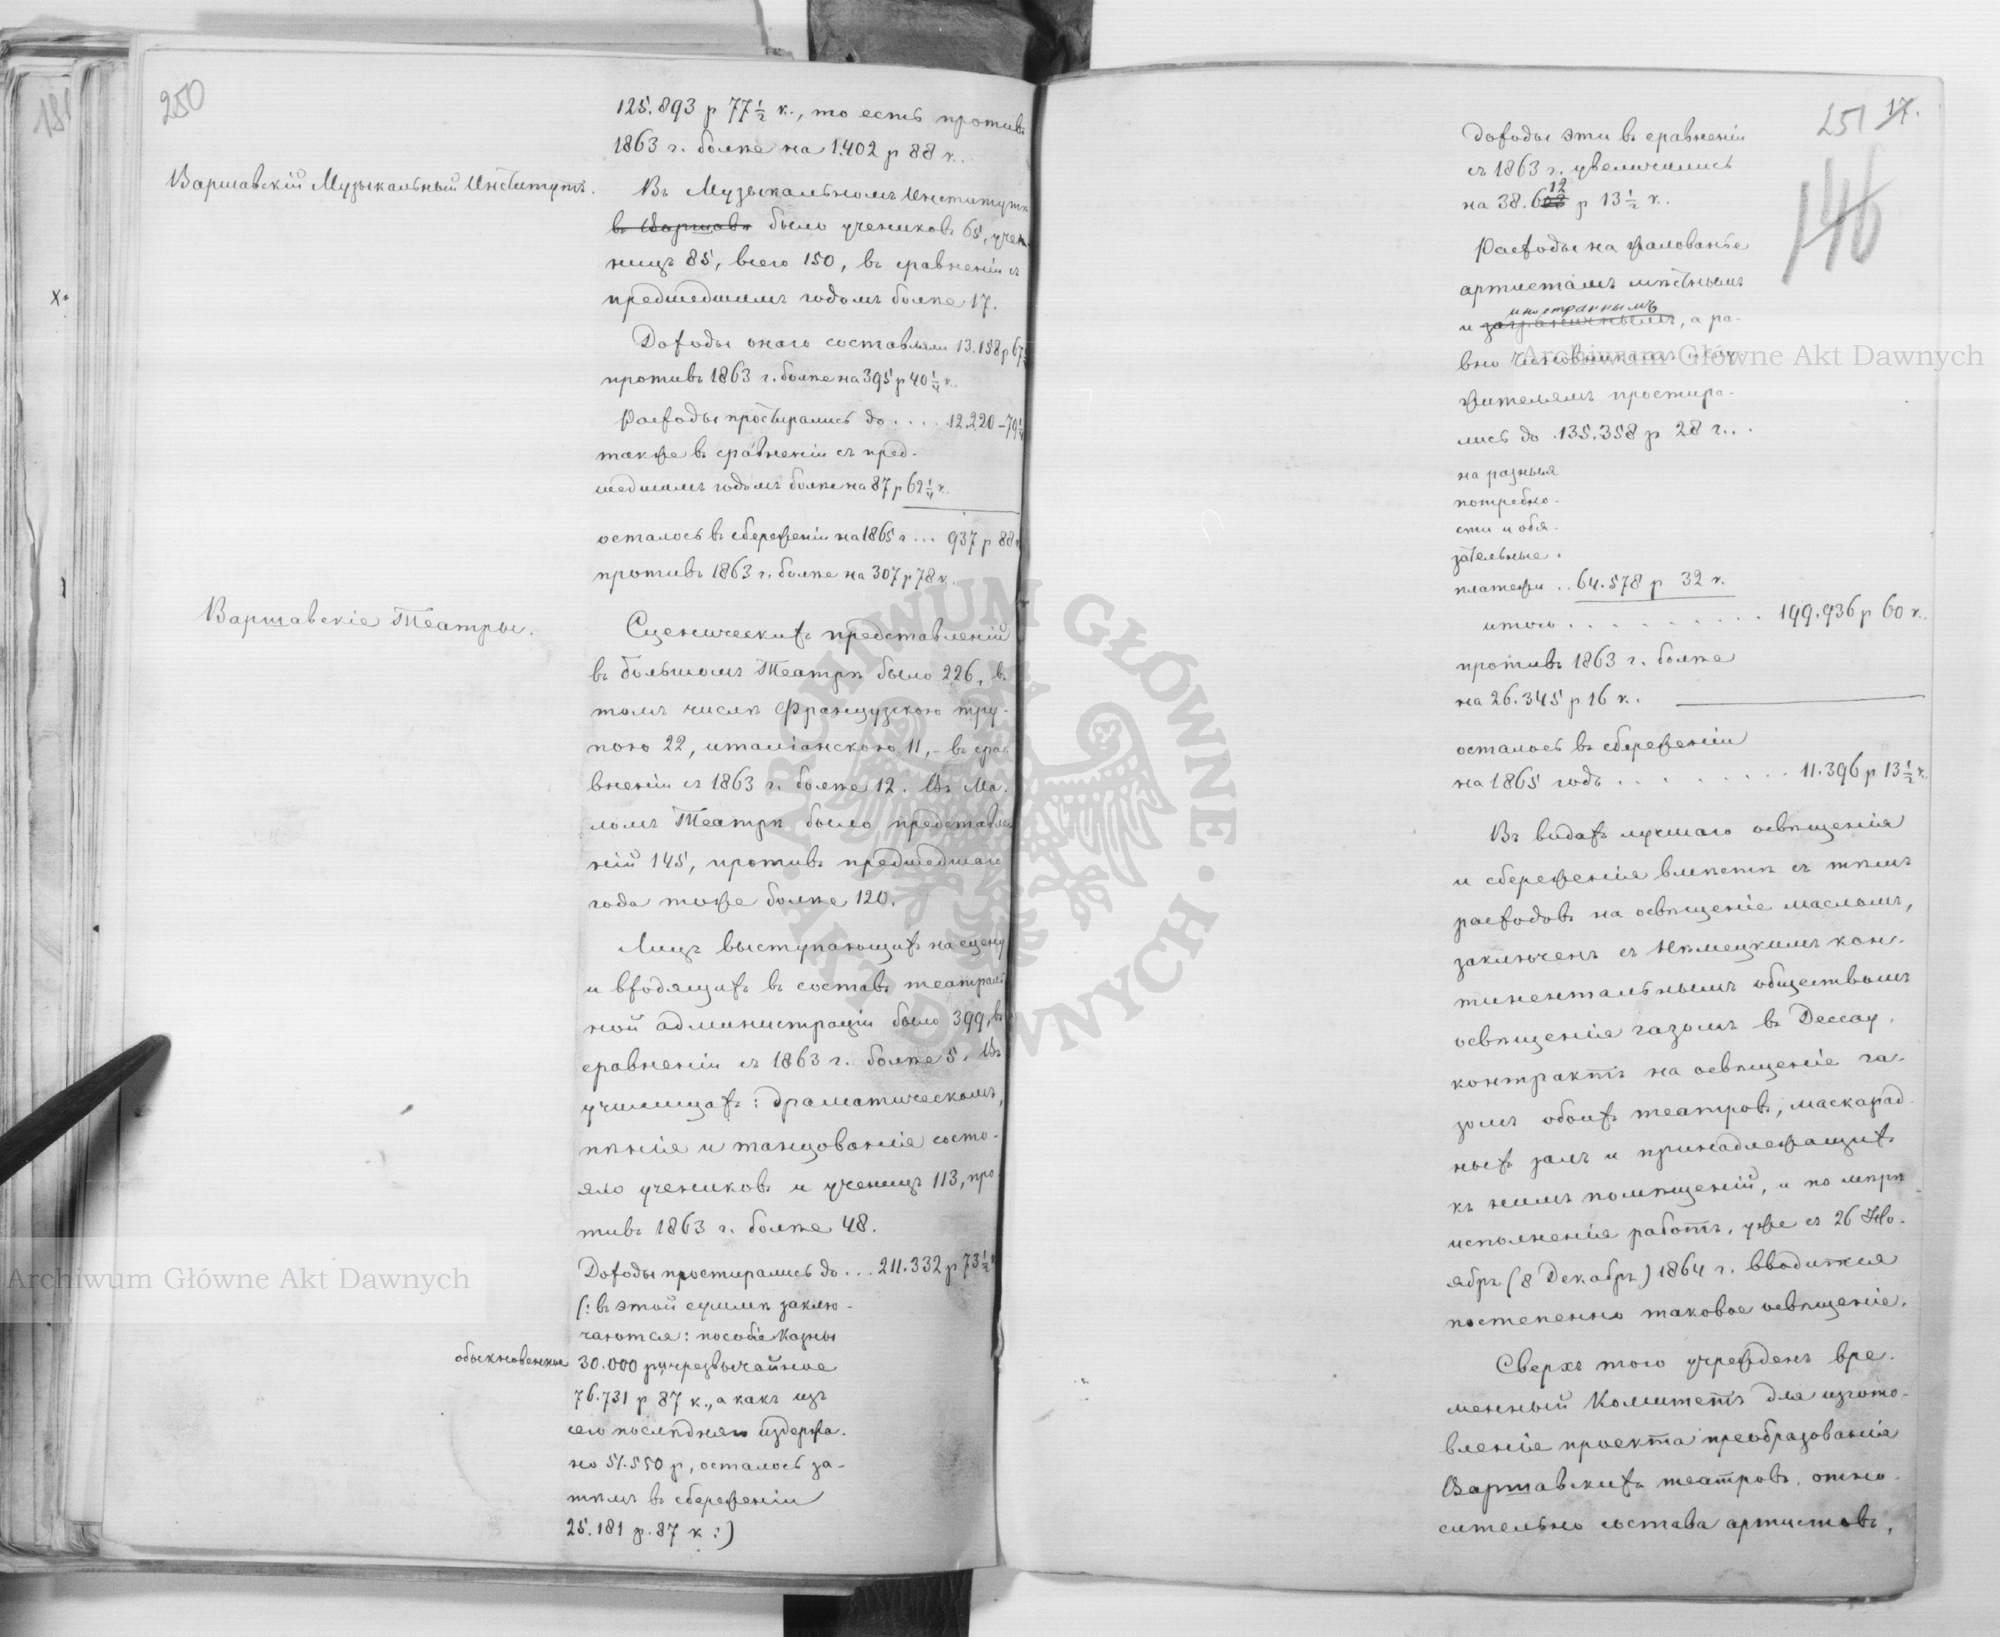 181
250
125.893 р 77½ к., то есть противъ
1863 г. болѣе на 1.402 р 88 к.
Варшавскій Музыкальный Институтъ.
Въ Музыкальномъ Институтѣ
въ Варшавѣ было учениковъ 65, уче-
ницъ 85, всего 150, въ сравненіи съ
предшедшимъ годомъ болѣе 17.
Доходы онаго составляли 13.158 р 67
противъ 1863 г. болѣе на 395 р 40¼ к.
Расходы простирались до .... 12.220 - 79
также въ сравненіи съ пред-
шедшимъ годомъ болѣе на 87 р 62¼ к.
осталось въ сбереженіи на 1865 г ... 937 р 88 к
противъ 1863 г. болѣе на 307 р 78 к.
Варшавскіе Театры.
Сценическихъ представленій
въ большомъ Театрѣ было 226, въ
томъ числѣ Французскою тру-
пою 22, италіанскою 11, - въ сра-
вненіи съ 1863 г. болѣе 12. Въ Ма-
ломъ Театрѣ было представле
ній 145, противъ предшедшаго
года тоже болѣе 120.
Лицъ выступающихъ на сцену
и входящихъ въ составъ театраль
ной администраціи было 399, въ
сравненіи съ 1863 г. болѣе 5. Въ
училищахъ: драматическомъ,
пѣнія и танцованія состо-
яло учениковъ и ученицъ 113, про
тивъ 1863 г. болѣе 48.
Доходы простирались до ... 211.332 р 73½ к
(: въ этой суммѣ заклю-
чаются: пособіе Казны
обыкновенное 30.000 р и чрезвычайное
76.731 р 87 к., а какъ изъ
сего послѣдняго издержа-
но 51.550 р, осталось за-
тѣмъ въ сбереженіи
25.181 р. 87 к :)
251 17.
146
Доходы эти въ сравненіи
съ 1863 г. увеличились
12
на 38.6 р 13½ к.
Расходы на жалованье
артистамъ мѣстнымъ
иностраннымъ
и заграничнымъ, а ра-
вно чиновникамъ и
жителямъ простира-
лись до .135.358 р 28 к..
на разныя
потребно-
сти и обя-
зательные
платежи .. 64.578 р 32 к.
итого .......... 199.936 р 60 к.
противъ 1863 г. болѣе
на 26.345 р 16 к.
осталось въ сбереженіи
на 1865 годъ ......... 11.396 р 13½ к.
Въ видахъ лучшаго освѣщенія
и сбереженія вмѣстѣ съ тѣмъ
расходовъ на освѣщеніе масломъ,
заключенъ съ Нѣмецкимъ кон-
тинентальнымъ обществомъ
освѣщенія газомъ въ Дессау.
контрактъ на освѣщеніе га-
зомъ обоихъ театровъ, маскарад
ныхъ залъ и принадлежащихъ
къ нимъ помѣщеній, и по мѣрѣ
исполненія работъ, уже съ 26 Но-
ября (8 Декабря) 1864 г. вводится
постепенно таковое освѣщеніе.
Сверхъ того учрежденъ вре-
менный Комитетъ для изгото-
вленія проекта преобразованія
Варшавскихъ театровъ. отно-
сительно состава артистовъ,
Archiwum Główne Akt Dawnych
Archiwum Główne Akt Dawnych
ARCHIWUM GŁÓWNE · AKT DAWNYCH ·